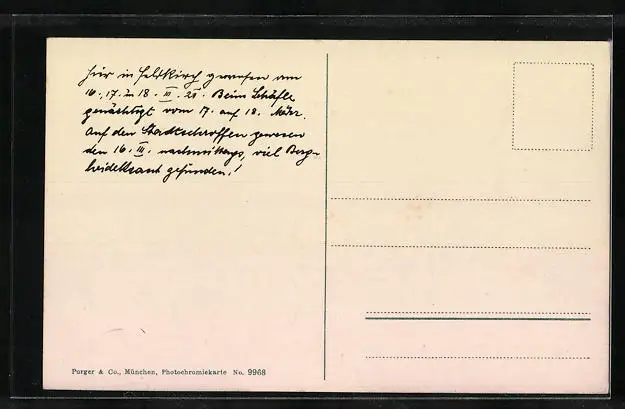 Hier in Feldkirch gewesen am
16., 17. u 18. III. 21. Beim Schäfle
genächtigt vom 17. auf 18. März.
Auf den Stadtschroffen gewesen
den 16. III. nachmittags, viel Berg-
heidekraut gefunden!
Purger & Co., München, Photochromiekarte No. 9968